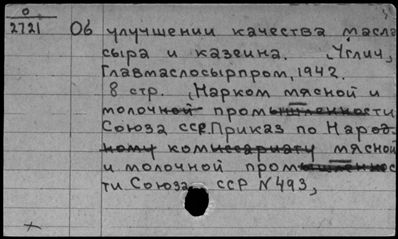 О
2721
Об улучшении качества масла
сыра и казеина. Углич,
Главмаслосырпром, 1942.
8 стр. Нарком мясной и
молочной промышленности
Союза ССР. Приказ по Народ-
ному комиссариату мясной
и молочной промышленнос
ти Союза ССР №493,